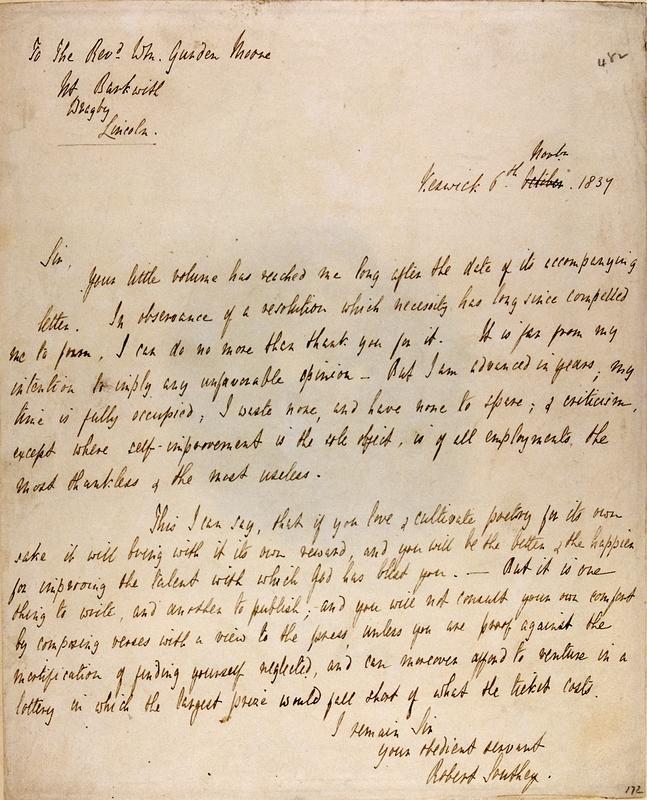 To The Revd. Wm. Gurden Moore
Wt Barkwith
Wragby
Lincoln.
482
Novbr
Keswick 6th. October. 1837
Sir,
Your little volume has reached me long after the date of its accompanying
letter. In observance of a resolution which necessity has long since compelled
me to form, I can do no more than thank you for it. It is far from my
intention to imply any unfavorable opinion – But I am advanced in years; my
time is fully occupied; I waste none, and have none to spare; & criticism,
except where self-improvement is the sole object, is of all employments, the
most thankless & the most useless.
This I can say, that if you love & cultivate poetry for its own
sake it will bring with it its own reward, and you will be the better & the happier
for improving the talent with which God has blest you. — But it is one
thing to write, and another to publish; and you will not consult your own comfort
by composing verses with a view to the press, unless you are proof against the
mortification of finding yourself neglected, and can moreover afford to venture in a
lottery in which the largest prize would fall short of what the ticket costs.
I remain Sir
Your obedient servant
Robert Southey.
172